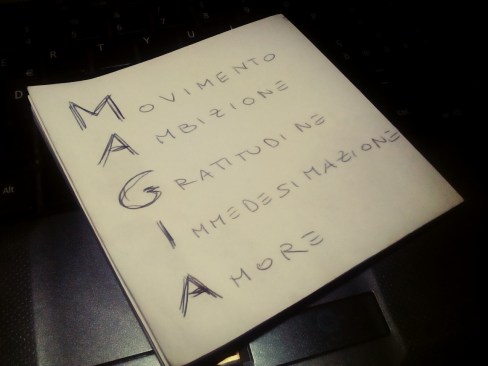 MOVIMENTO
AMBIZIONE
GRATITUDINE
IMMEDESIMAZIONE
AMORE